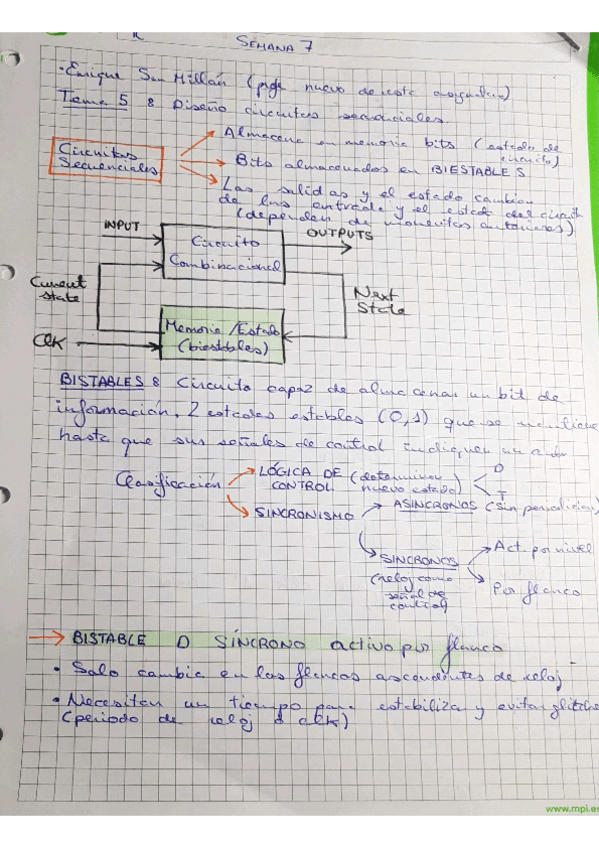 SEMANA 7
· Enrique San Millán (profe nuevo de esta asignatura)
Tema 5 : Diseño circuitos secuenciales.
Circuitos
Secuenciales
Almacena en memoria bits (estado de
circuito)
Bits almacenados en BIESTABLES
Las salidas y el estado cambian
de las entradas y el estado del circuito
(dependen de momentos anteriores)
INPUT
Circuito
Combinacional
OUTPUTS
Current
state
Next
State
CLK
Memoria /Estado
(biestables)
BISTABLES : Circuito capaz de almacenar un bit de
información, 2 estados estables (0,1) que se mantiene
hasta que sus señales de control indiquen un
Clasificación
LÓGICA DE
CONTROL
(determinar
nuevo estado)
D
T
SINCRONISMO
ASINCRONOS (sin periodicidad)
SINCRONOS
(reloj como
señal de
control)
Act. por nivel
Por flanco
BISTABLE D SÍNCRONO activo por flanco
• Solo cambia en los flancos ascendentes de reloj
• Necesitan un tiempo para estabiliza y evitar glitche
(periodo de reloj o clk)
www.mpi.es